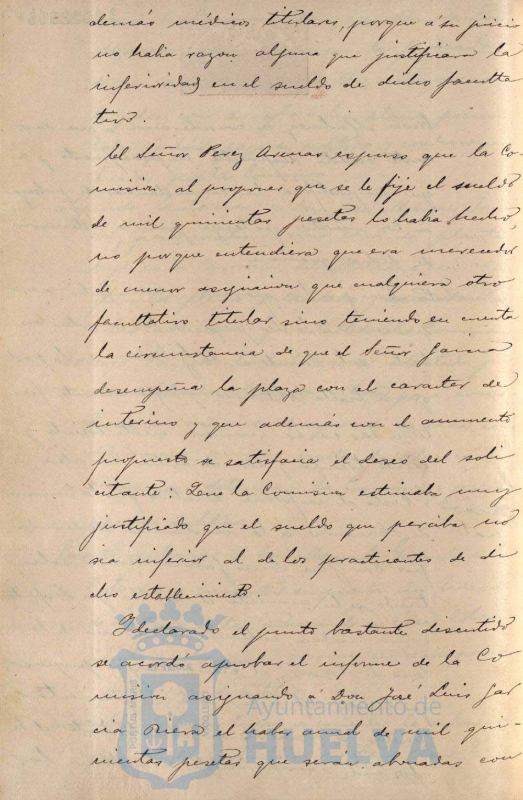 demás médicos titulares, porque á su juicio
no habia razon alguna que justificara la
inferioridad en el sueldo de dicho faculta
tivo.
El Señor Perez Arenas expuso que la Co-
mision al proponer que se le fije el sueldo
de mil quinientas pesetas lo habia hecho,
no porque entendiera que era merecedor
de menor asignacion que cualquiera otro
facultativo titular sino teniendo en cuenta
la circunstancia de que el Señor
desempeña la plaza con el caracter de
interino y que además con el aumento
propuesto se satisfacia el deseo del soli
citante: Que la Comision estimaba muy
justificado que el sueldo que perciba no
sea inferior al de los practicantes de di
cho establecimiento.
Y declarado el punto bastante discutido
se acordó aprobar el informe de la Co
mision asignando á Don José Luis Gar
cia el haber anual de mil qui-
nientas pesetas que serán abonadas con
Ayuntamiento de
HUELVA